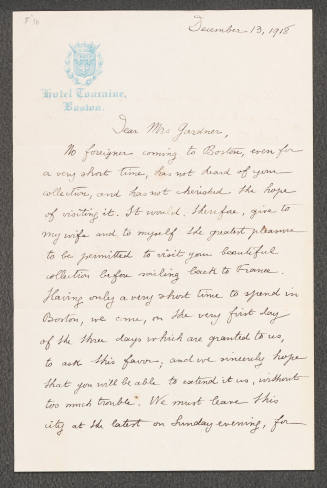 December 13, 1918
Hotel Touraine,
Boston.
Dear Mrs Gardner,
No foreigner coming to Boston, even for
a very short time, has not heard of your
collection, and has not cherished the hope
of visiting it. It would, therefore, give to
my wife and to myself the greatest pleasure
to be permitted to visit your beautiful
collection before sailing back to France.
Having only a very short time to spend in
Boston, we come, on the very first day
of the three days which are granted to us,
to ask this favor; and we sincerely hope
that you will be able to extend it us, without
too much trouble. We must leave this
city at the latest on Sunday evening, for